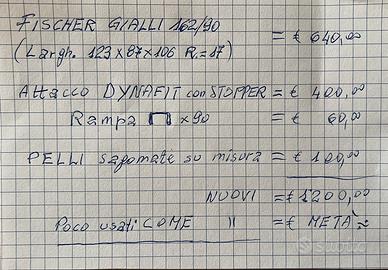 FISCHER GIALLI 162/90 = € 640,00
(Largh. 123x87x106 R.=17)
Attacco DYNAFIT con STOPPER = € 400,00
Rampa x90 = € 60,00
PELLI sagomate su misura = € 100,00
NUOVI = € 1200,00
Poco usati COME " = € METÀ
subito